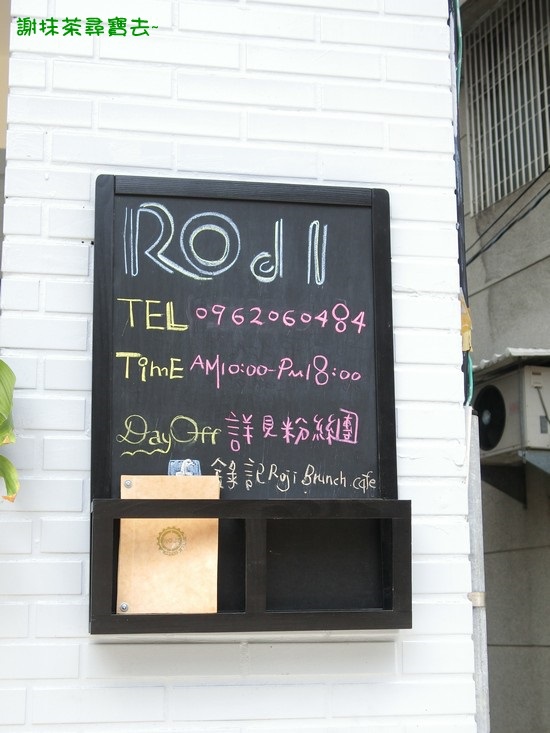 謝抹茶尋寶去~
RodI
TEL 0962060484
TimE AM10:00-PM18:00
Day Off 詳見粉絲團
錄記 Roji Brunch cafe